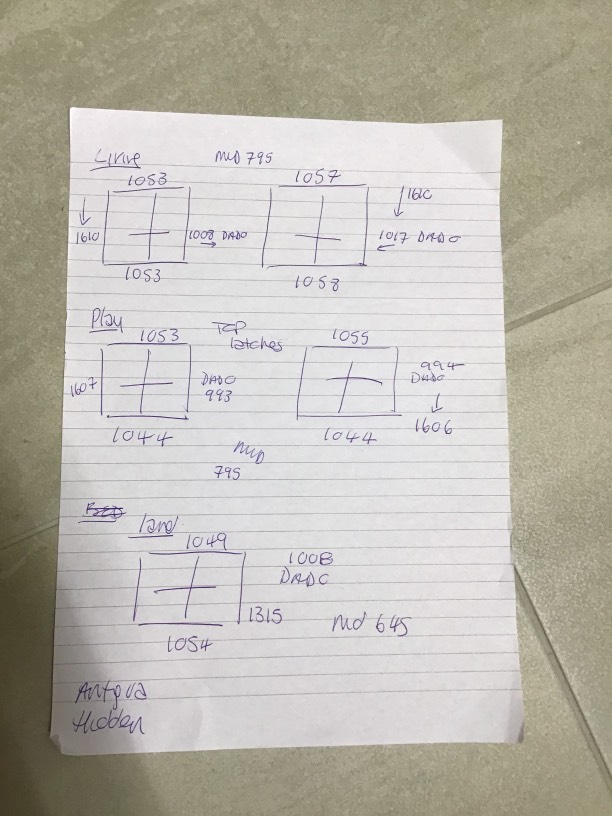 Living MID 795
1053 1057
1610 1008 DADO 1610
1017 DADO
1053 1058
Play 1053 TOP 1055
latches
1607 DADO 994
993 DADO
1044 1044 1606
MID
795
land
1049
1008
DADO
1315 Mid 645
1054
Antigua
Hidden